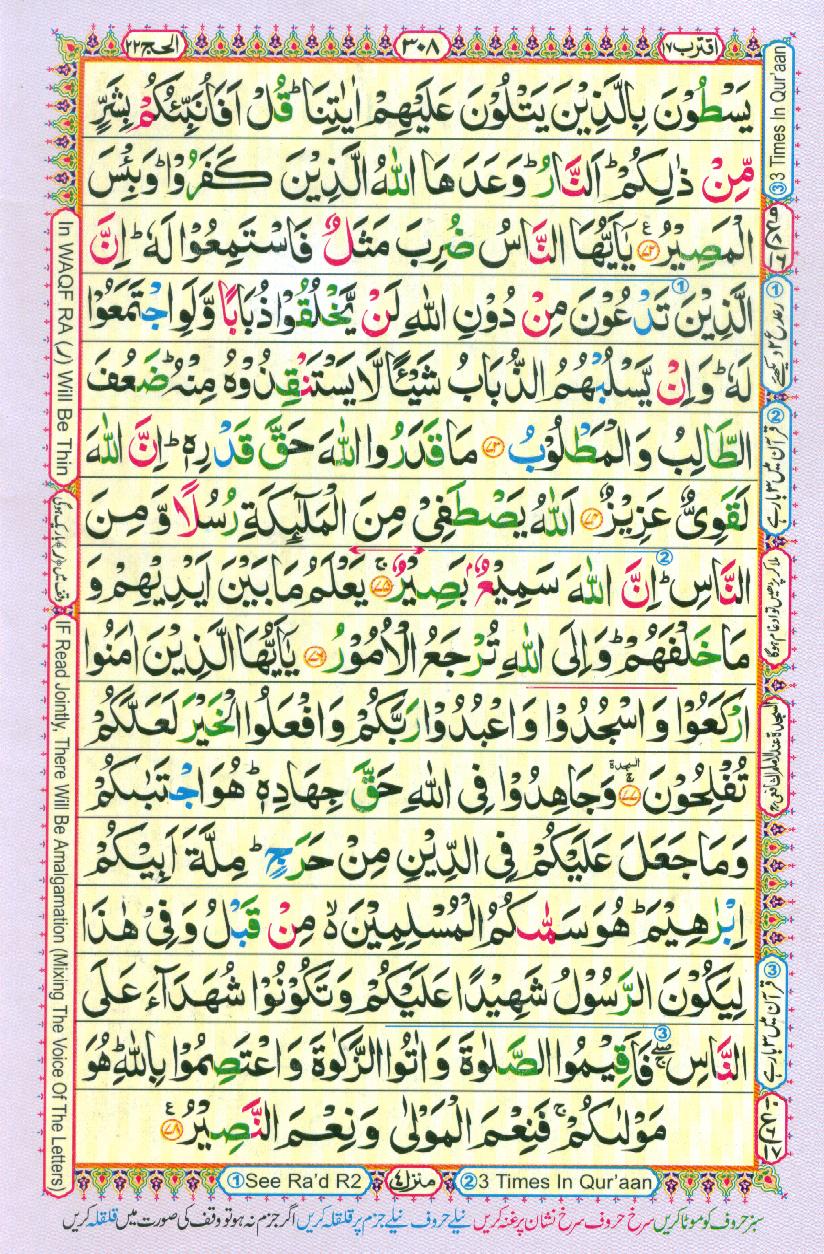 اقترب ١٧
٣٠٨
الحج ٢٢
يَسۡطُوۡنَ بِالَّذِيۡنَ يَتۡلُوۡنَ عَلَيۡهِمۡ اٰيٰتِنَا ؕ قُلۡ اَفَاُنَبِّئُكُمۡ بِشَرٍّ
مِّنۡ ذٰ لِكُمُ ؕ اَلنَّارُ ؕ وَعَدَهَا اللّٰهُ الَّذِيۡنَ كَفَرُوۡا ؕ وَبِئۡسَ
الۡمَصِيۡرُ ﴿٧٢﴾ يٰۤاَيُّهَا النَّاسُ ضُرِبَ مَثَلٌ فَاسۡتَمِعُوۡا لَهٗ ؕ اِنَّ
الَّذِيۡنَ تَدۡعُوۡنَ مِنۡ دُوۡنِ اللّٰهِ لَنۡ يَّخۡلُقُوۡا ذُبَابًا وَّلَوِ اجۡتَمَعُوۡا
لَهٗ ؕ وَاِنۡ يَّسۡلُبۡهُمُ الذُّبَابُ شَيۡـًٔـا لَّا يَسۡتَنۡقِذُوۡهُ مِنۡهُ ؕ ضَعُفَ
الطَّالِبُ وَالۡمَطۡلُوۡبُ ﴿٧٣﴾ مَا قَدَرُوا اللّٰهَ حَقَّ قَدۡرِهٖ ؕ اِنَّ اللّٰهَ
لَقَوِىٌّ عَزِيۡزٌ ﴿٧٤﴾ اَللّٰهُ يَصۡطَفِىۡ مِنَ الۡمَلٰٓٮِٕكَةِ رُسُلًا وَّمِنَ
النَّاسِ ؕ اِنَّ اللّٰهَ سَمِيۡعٌۢ بَصِيۡرٌ ۚ ﴿٧٥﴾ يَعۡلَمُ مَا بَيۡنَ اَيۡدِيۡهِمۡ وَ
مَا خَلۡفَهُمۡ ؕ وَاِلَى اللّٰهِ تُرۡجَعُ الۡاُمُوۡرُ ﴿٧٦﴾ يٰۤاَيُّهَا الَّذِيۡنَ اٰمَنُوا
ارۡكَعُوۡا وَاسۡجُدُوۡا وَاعۡبُدُوۡا رَبَّكُمۡ وَافۡعَلُوا الۡخَيۡرَ لَعَلَّكُمۡ
تُفۡلِحُوۡنَ ﴿٧٧﴾ السجدة وَجَاهِدُوۡا فِى اللّٰهِ حَقَّ جِهَادِهٖ ؕ هُوَ اجۡتَبٰٮكُمۡ
وَمَا جَعَلَ عَلَيۡكُمۡ فِى الدِّيۡنِ مِنۡ حَرَجٍ ؕ مِلَّةَ اَبِيۡكُمۡ
اِبۡرٰهِيۡمَ ؕ هُوَ سَمّٰٮكُمُ الۡمُسۡلِمِيۡنَ ۙ مِنۡ قَبۡلُ وَفِىۡ هٰذَا
لِيَكُوۡنَ الرَّسُوۡلُ شَهِيۡدًا عَلَيۡكُمۡ وَتَكُوۡنُوۡا شُهَدَآءَ عَلَى
النَّاسِ ۖۚ فَاَقِيۡمُوا الصَّلٰوةَ وَاٰتُوا الزَّكٰوةَ وَاعۡتَصِمُوۡا بِاللّٰهِ ؕ هُوَ
مَوۡلٰٮكُمۡ ۚ فَنِعۡمَ الۡمَوۡلٰى وَنِعۡمَ النَّصِيۡرُ ﴿٧٨﴾
③ 3 Times In Qur'aan
② قرآن میں ۳ بار ہے
③ قرآن میں ۳ بار ہے
In WAQF RA (ر) Will Be Thin
IF Read Jointly, There Will Be Amalgamation (Mixing The Voice Of The Letters)
① See Ra'd R2
منزل ٤
② 3 Times In Qur'aan
سبز حروف کو موٹا کریں سرخ حروف سرخ نشان پر غنہ کریں نیلے حروف نیلے جزم پر قلقلہ کریں اگر جزم نہ ہو تو وقف کی صورت میں قلقلہ کریں